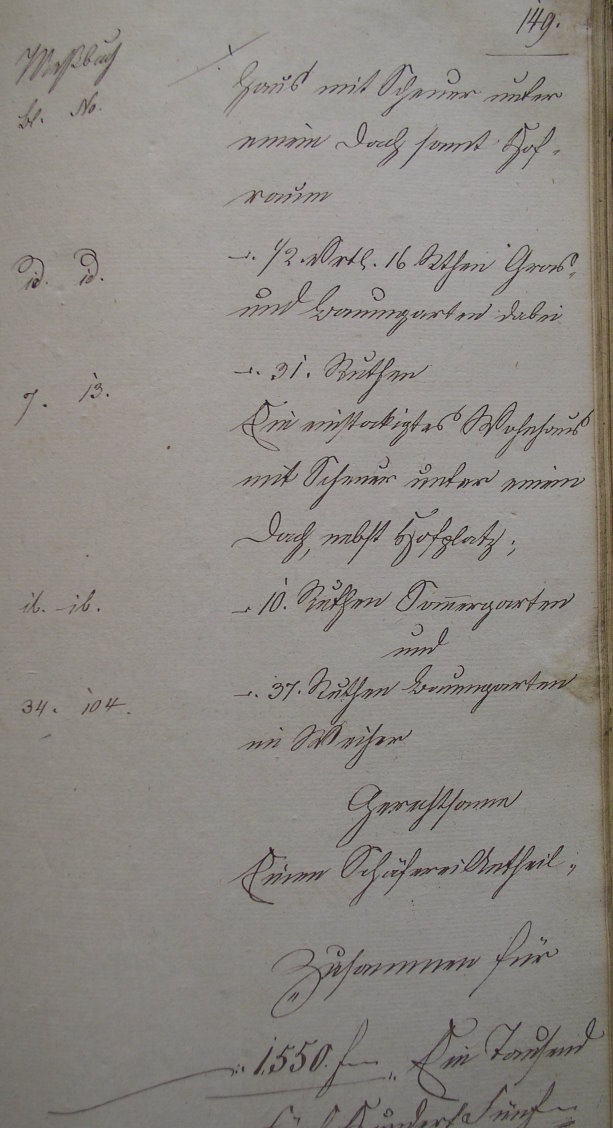 149.
Meßbuch
bl. No.
Haus mit Scheuer unter
einem Dach samt Hof-
raum
id. id.
–. 1/2. Vrtl. 16 Rthen Gras-
und Baumgarten dabei
–. 31. Ruthen
7. 13.
Ein einstockigtes Wohnhaus
mit Scheuer unter einem
Dach, nebst Hofplatz;
ib. – ib.
–. 10. Ruthen Sommergarten
und
34. 104.
–. 37. Ruthen Baumgarten
im Weiher
Gerechtsame
Einen Schäferei Antheil.
Zusammen für
1550. f Ein Tausend
fünf Hundert Fünf-